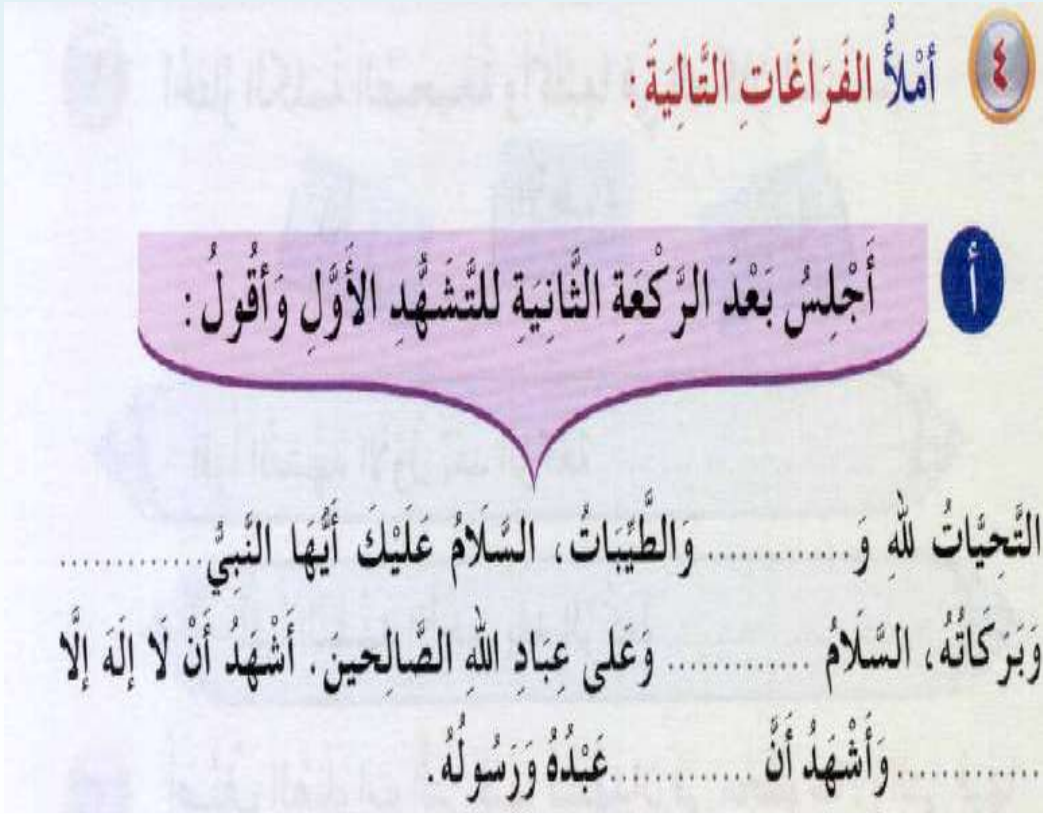 ٤ أَمْلأُ الفَرَاغَاتِ التَّالِيَةَ :
أ أَجْلِسُ بَعْدَ الرَّكْعَةِ الثَّانِيَةِ للتَّشَهُّدِ الأَوَّلِ وَأَقُولُ :
التَّحِيَّاتُ للهِ وَ............. وَالطَّيِّبَاتُ، السَّلَامُ عَلَيْكَ أَيُّهَا النَّبِيُّ.............
وَبَرَكَاتُهُ، السَّلَامُ ............. وَعَلى عِبَادِ اللهِ الصَّالِحينَ. أَشْهَدُ أَنْ لَا إِلَهَ إِلَّا
.............وَأَشْهَدُ أَنَّ .............عَبْدُهُ وَرَسُولُهُ.